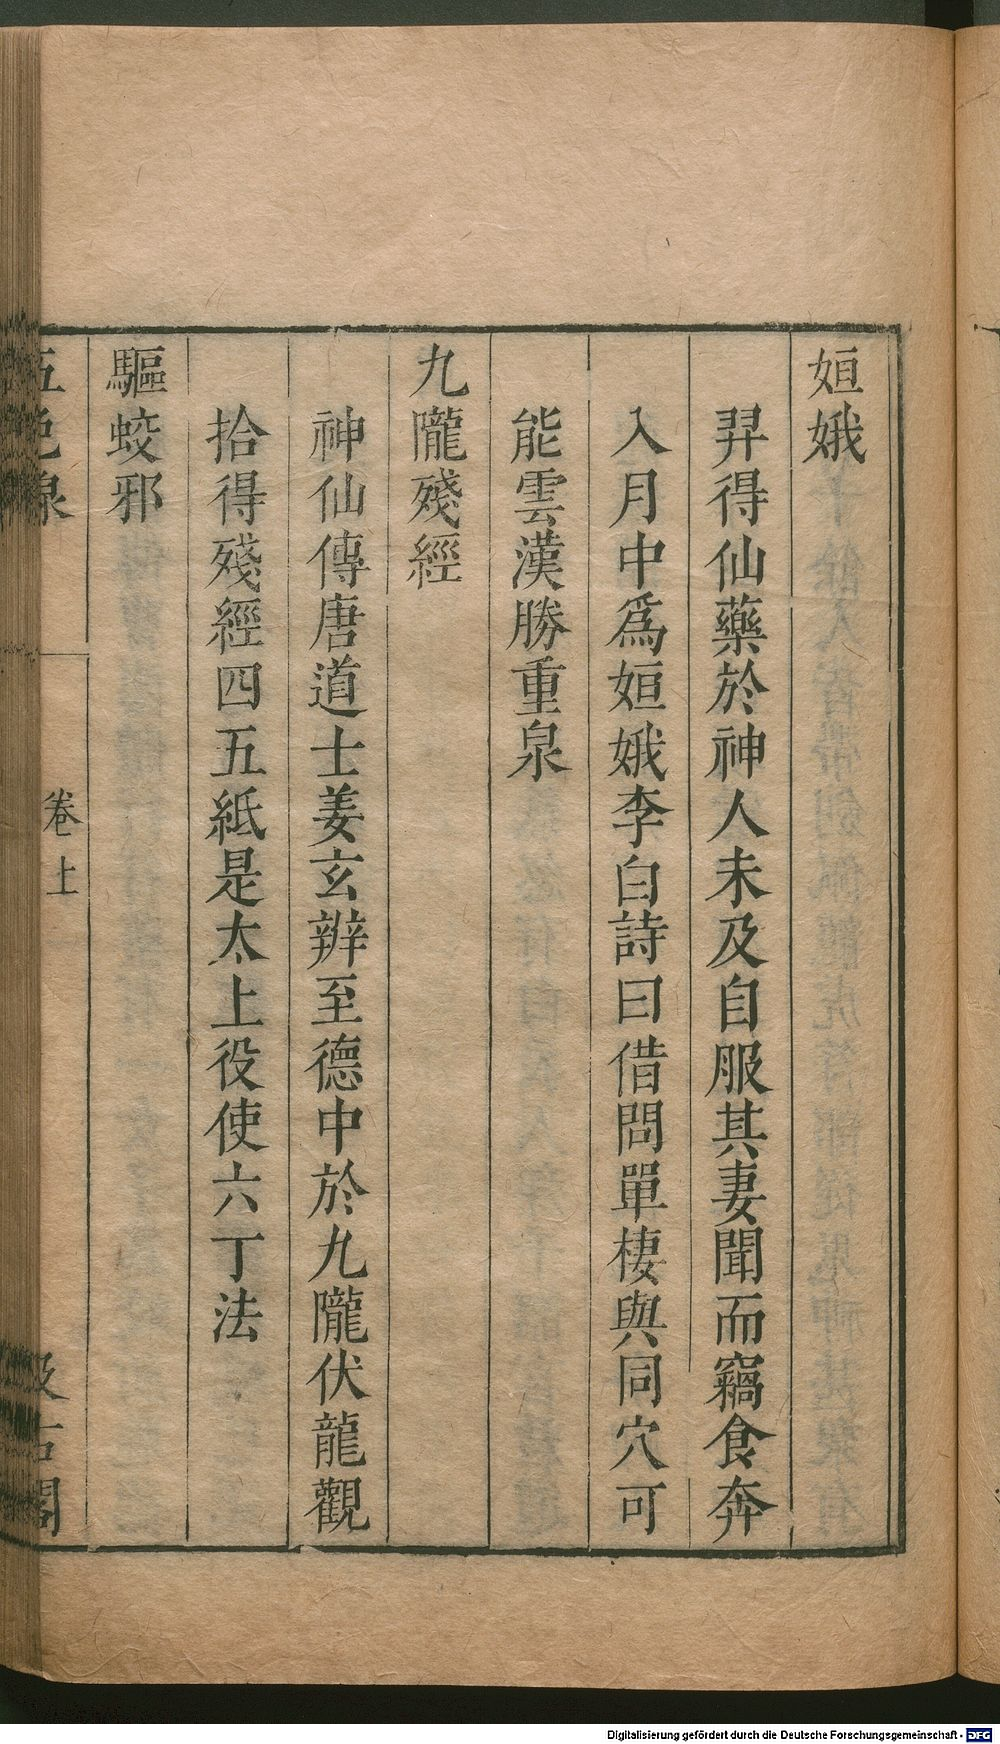 姮娥
羿得仙藥於神人未及自服其妻聞而竊食奔
入月中爲姮娥李白詩曰借問單棲與同穴可
能雲漢勝重泉
九隴殘經
神仙傳唐道士姜玄辨至德中於九隴伏龍觀
拾得殘經四五紙是太上役使六丁法
驅蛟邪
五色線
卷上
汲古閣
Digitalisierung gefördert durch die Deutsche Forschungsgemeinschaft - DFG